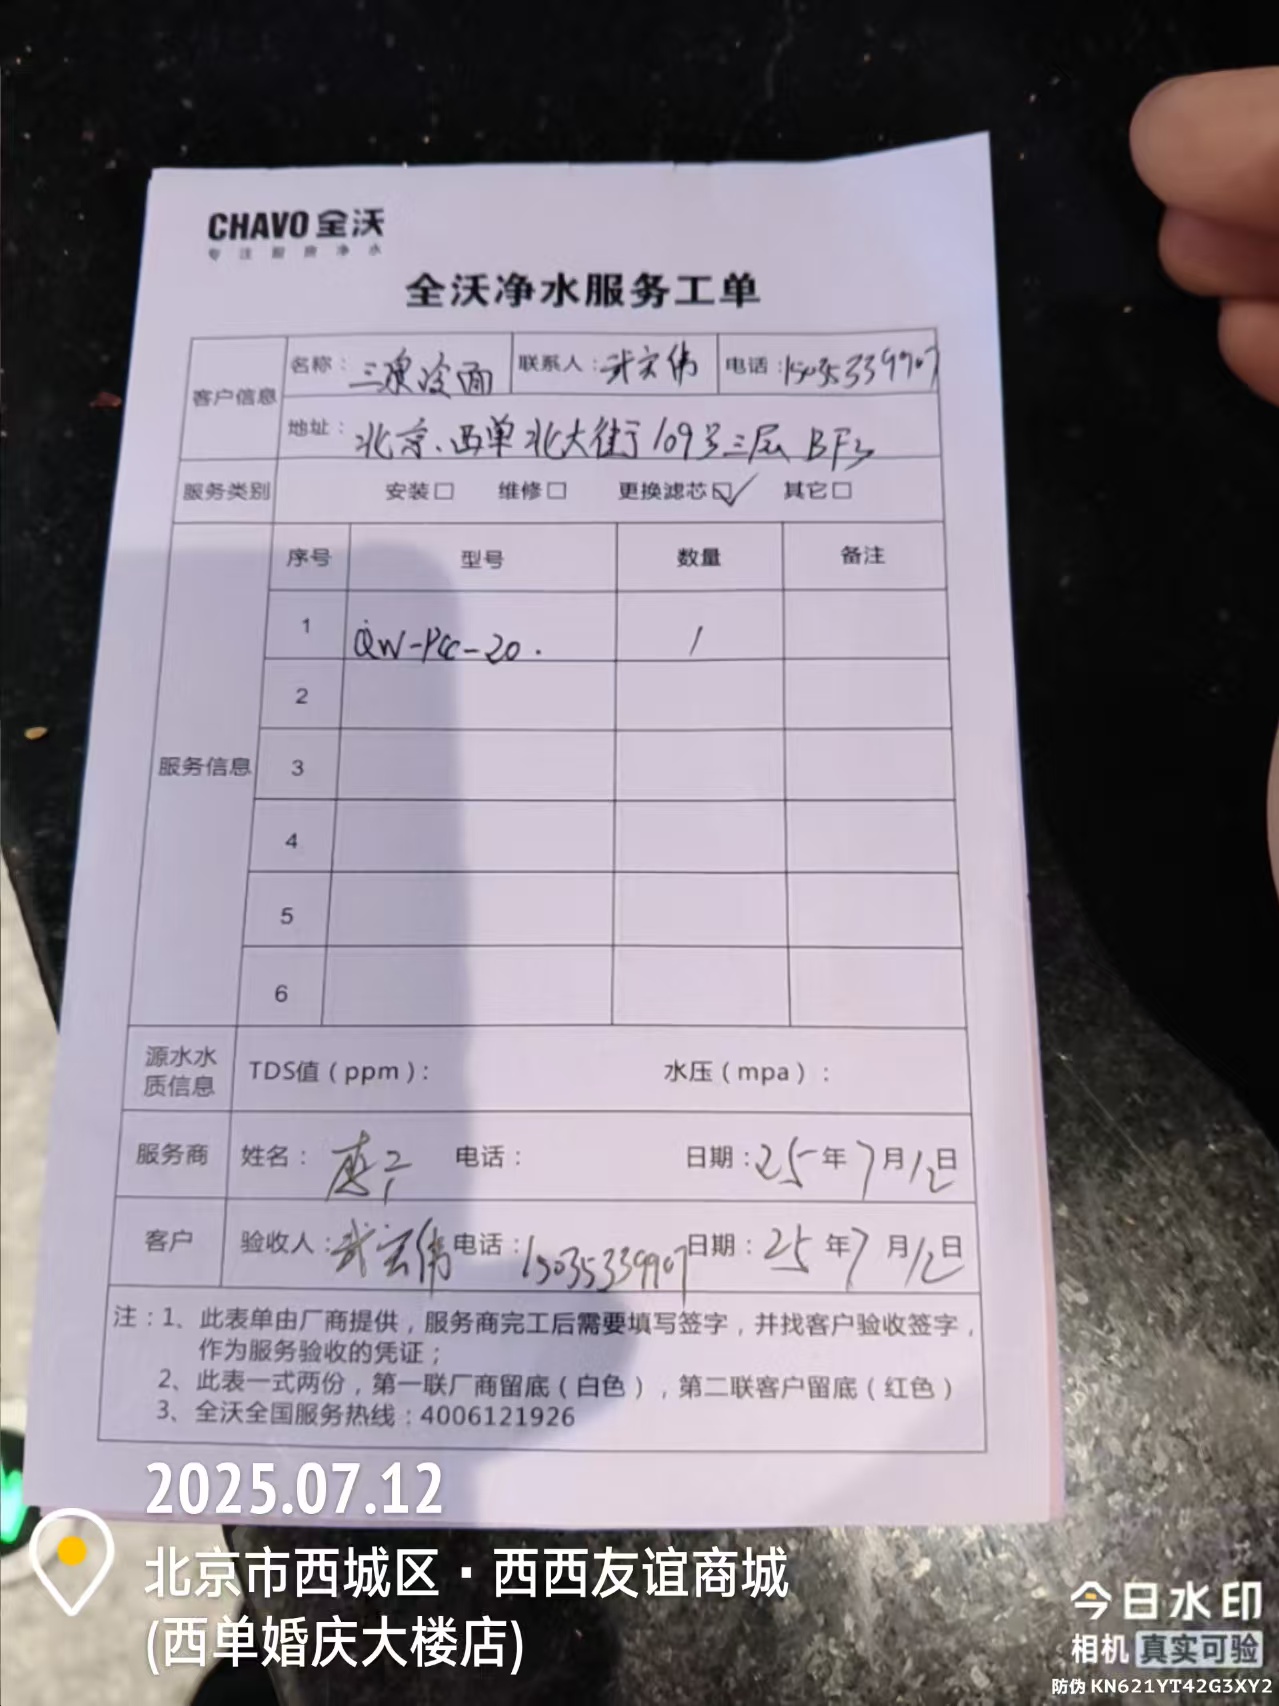 CHAVO 全沃
专注厨房净水
全沃净水服务工单
客户信息 名称：三泉冷面 联系人：武宏伟 电话：15035339907
地址：北京、西单北大街109号三层BF3
服务类别 安装□ 维修□ 更换滤芯☑ 其它□
服务信息 序号 型号 数量 备注
1 QW-PCC-20. 1
2
3
4
5
6
源水水质信息 TDS值（ppm）： 水压（mpa）：
服务商 姓名： 电话： 日期：25年7月12日
客户 验收人：武宏伟 电话：15035339907 日期：25年7月12日
注：1、此表单由厂商提供，服务商完工后需要填写签字，并找客户验收签字，
作为服务验收的凭证；
2、此表一式两份，第一联厂商留底（白色），第二联客户留底（红色）
3、全沃全国服务热线：4006121926
2025.07.12
北京市西城区·西西友谊商城
(西单婚庆大楼店)
今日水印
相机 真实可验
防伪 KN621YT42G3XY2